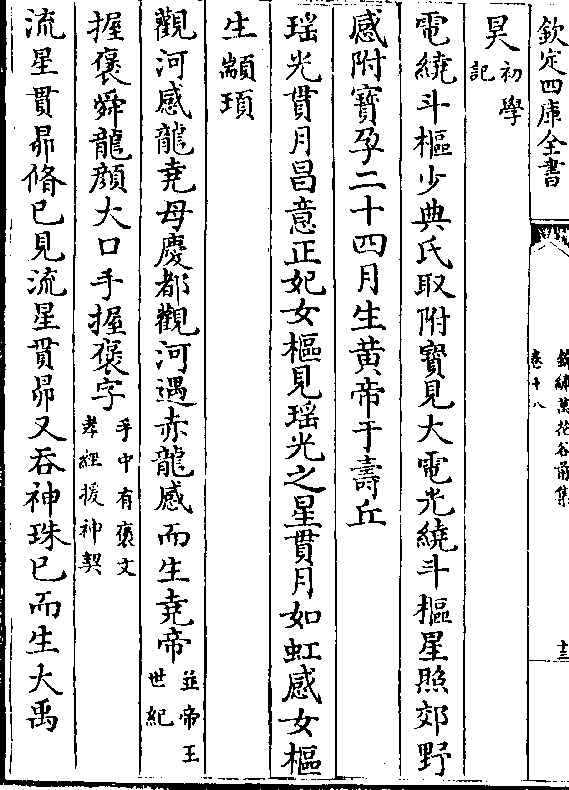 欽定四庫全書
錦繡萬花谷前集
卷十八
十三
昊初學記
電繞斗樞少典氏取附寶見大電光繞斗樞星照郊野
感附寶孕二十四月生黄帝于壽丘
瑶光貫月昌意正妃女樞見瑶光之星貫月如虹感女樞
生顓頊
觀河感龍堯母慶都觀河遇赤龍感而生堯帝並帝王世紀
握褒舜龍顔大口手握褒字手中有褒文孝經援神契
流星貫昴脩已見流星貫昴又吞神珠已而生大禹